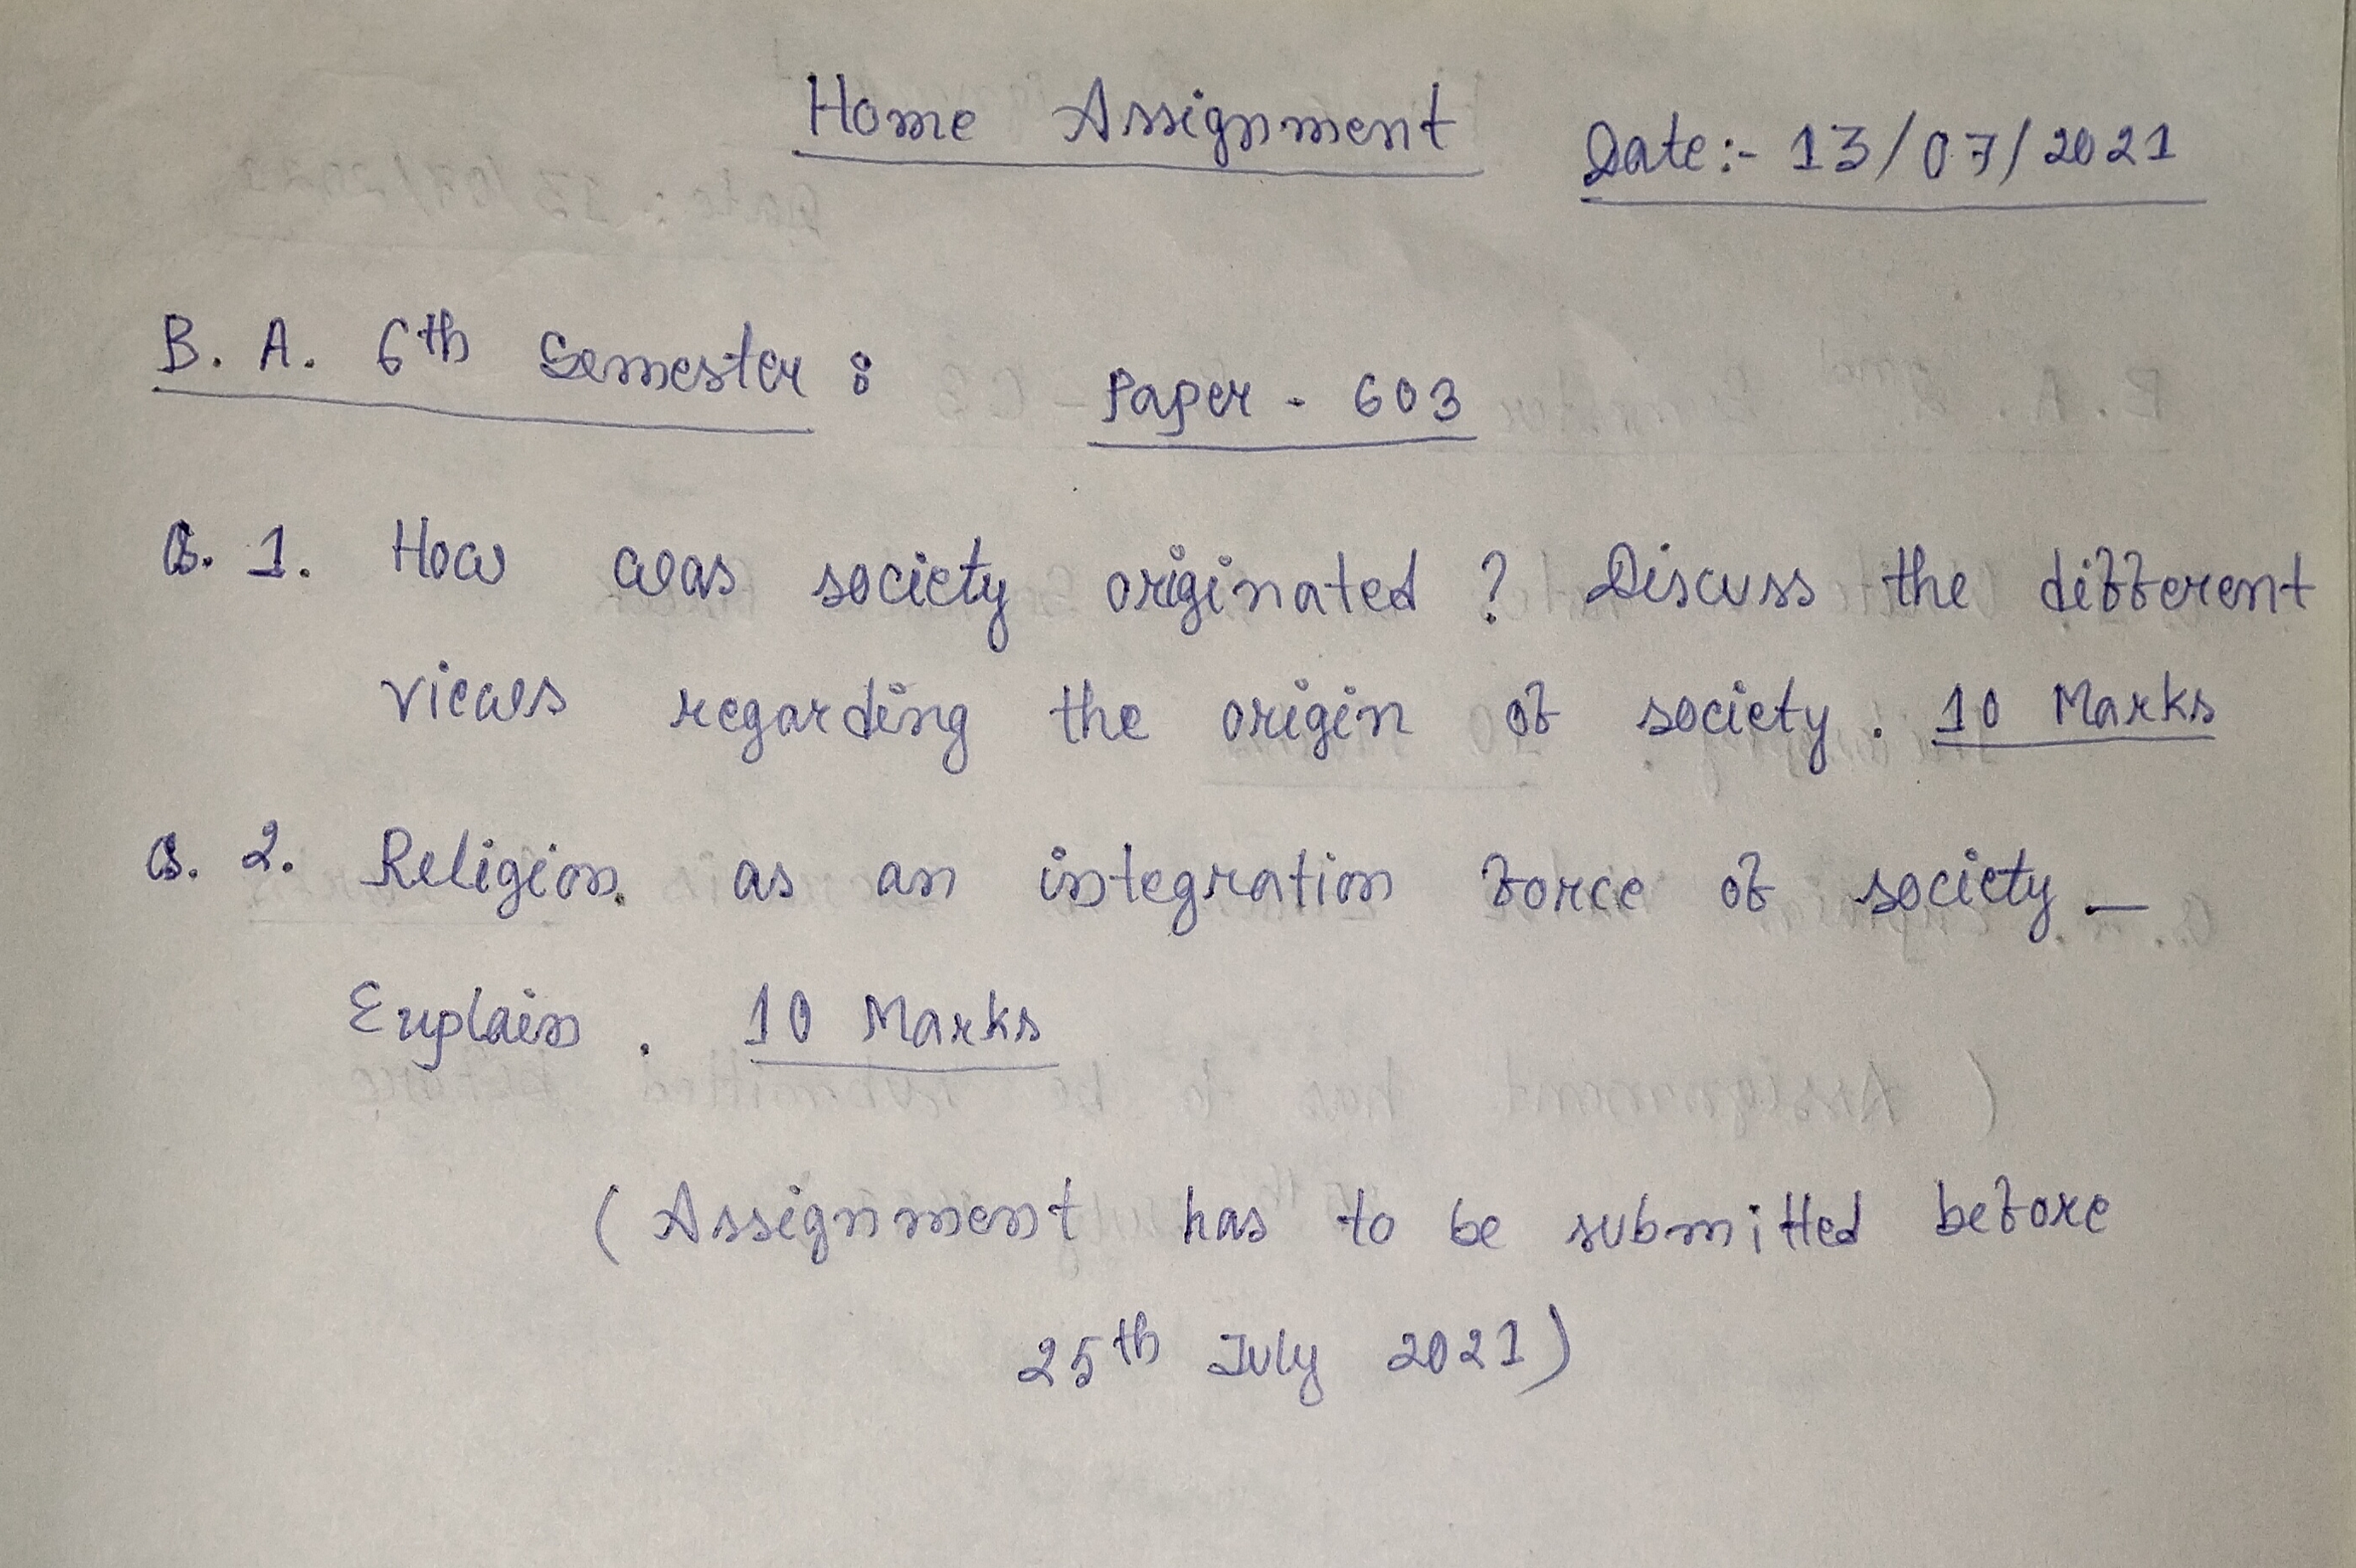 Home Assignment Date:- 13/07/2021
B. A. 6th Semester : Paper - 603
Q. 1. How was society originated ? Discuss the different
views regarding the origin of society. 10 Marks
Q. 2. Religion as an integration force of society —
Explain. 10 Marks
( Assignment has to be submitted before
25th July 2021)